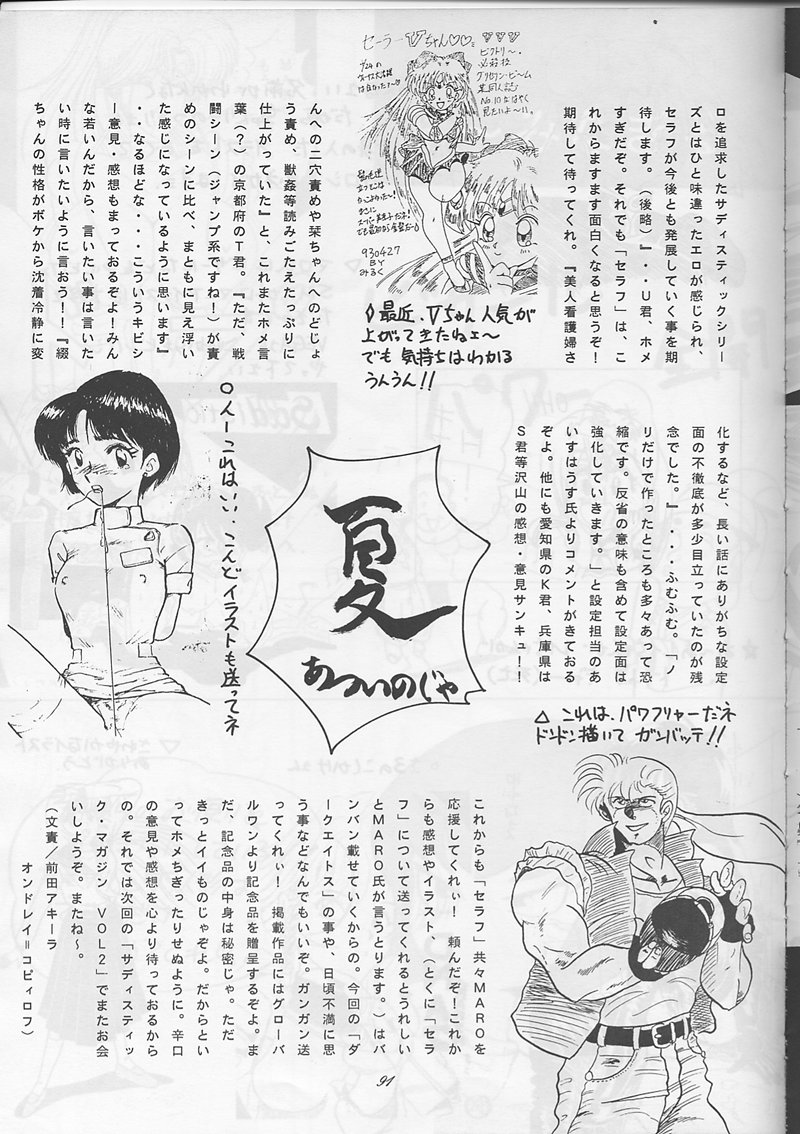 ロを追求したサディスティックシリー
ズとはひと味違ったエロが感じられ、
セラフが今後とも発展していく事を期
待します。(後略)』・・U君、ホメ
すぎだぞ。それでも「セラフ」は、こ
れからますます面白くなると思うぞ!
期待して待ってくれ。『美人看護婦さ
セーラーVちゃん♡♡
ビクトリー・
必殺技
930427
BY
みるく
◊最近、Vちゃん人気が
上がってきたねェ〜
でも気持ちはわかる
うんうん!!
んへの二穴責めや栞ちゃんへのどじょ
う責め、獣姦等読みごたえたっぷりに
仕上がっていた』と、これまたホメ言
葉(?)の京都府のT君。『ただ、戦
闘シーン(ジャンプ系ですね!)が責
めのシーンに比べ、まともに見え浮い
た感じになっているように思います』
・・なるほどな・・・こういうキビシ
ー意見・感想もまっておるぞよ!みん
な若いんだから、言いたい事は言いた
い時に言いたいように言おう!!『綴
ちゃんの性格がボケから沈着冷静に変
化するなど、長い話にありがちな設定
面の不徹底が多少目立っていたのが残
念でした。』・・・ふむふむ。「ノ
リだけで作ったところも多々あって恐
縮です。反省の意味も含めて設定面は
強化していきます。」と設定担当のあ
いすはうす氏よりコメントがきておる
ぞよ。他にも愛知県のK君、兵庫県は
S君等沢山の感想・意見サンキュ!!
夏
あついのじゃ
○人ーこれはいい、こんどイラストも送ってネ
△これは、パワフリャーだネ
ドンドン描いてガンバッテ!!
これからも「セラフ」共々MAROを
応援してくれぃ!頼んだぞ!これか
らも感想やイラスト、(とくに「セラ
フ」について送ってくれるとうれしい
とMARO氏が言うとります。)はバ
ンバン載せていくからの。今回の「ダ
ークエイトス」の事や、日頃不満に思
う事などなんでもいいぞ。ガンガン送
ってくれぃ!掲載作品にはグローバ
ルワンより記念品を贈呈するぞよ。ま
だ、記念品の中身は秘密じゃ。ただ
きっとイイものじゃぞよ。だからとい
ってホメちぎったりせぬように。辛口
の意見や感想を心より待っておるから
の。それでは次回の「サディスティッ
ク・マガジン VOL2」でまたお会
いしようぞ。またね〜。
(文責/前田アキーラ
オンドレイ=コピィロフ)
91